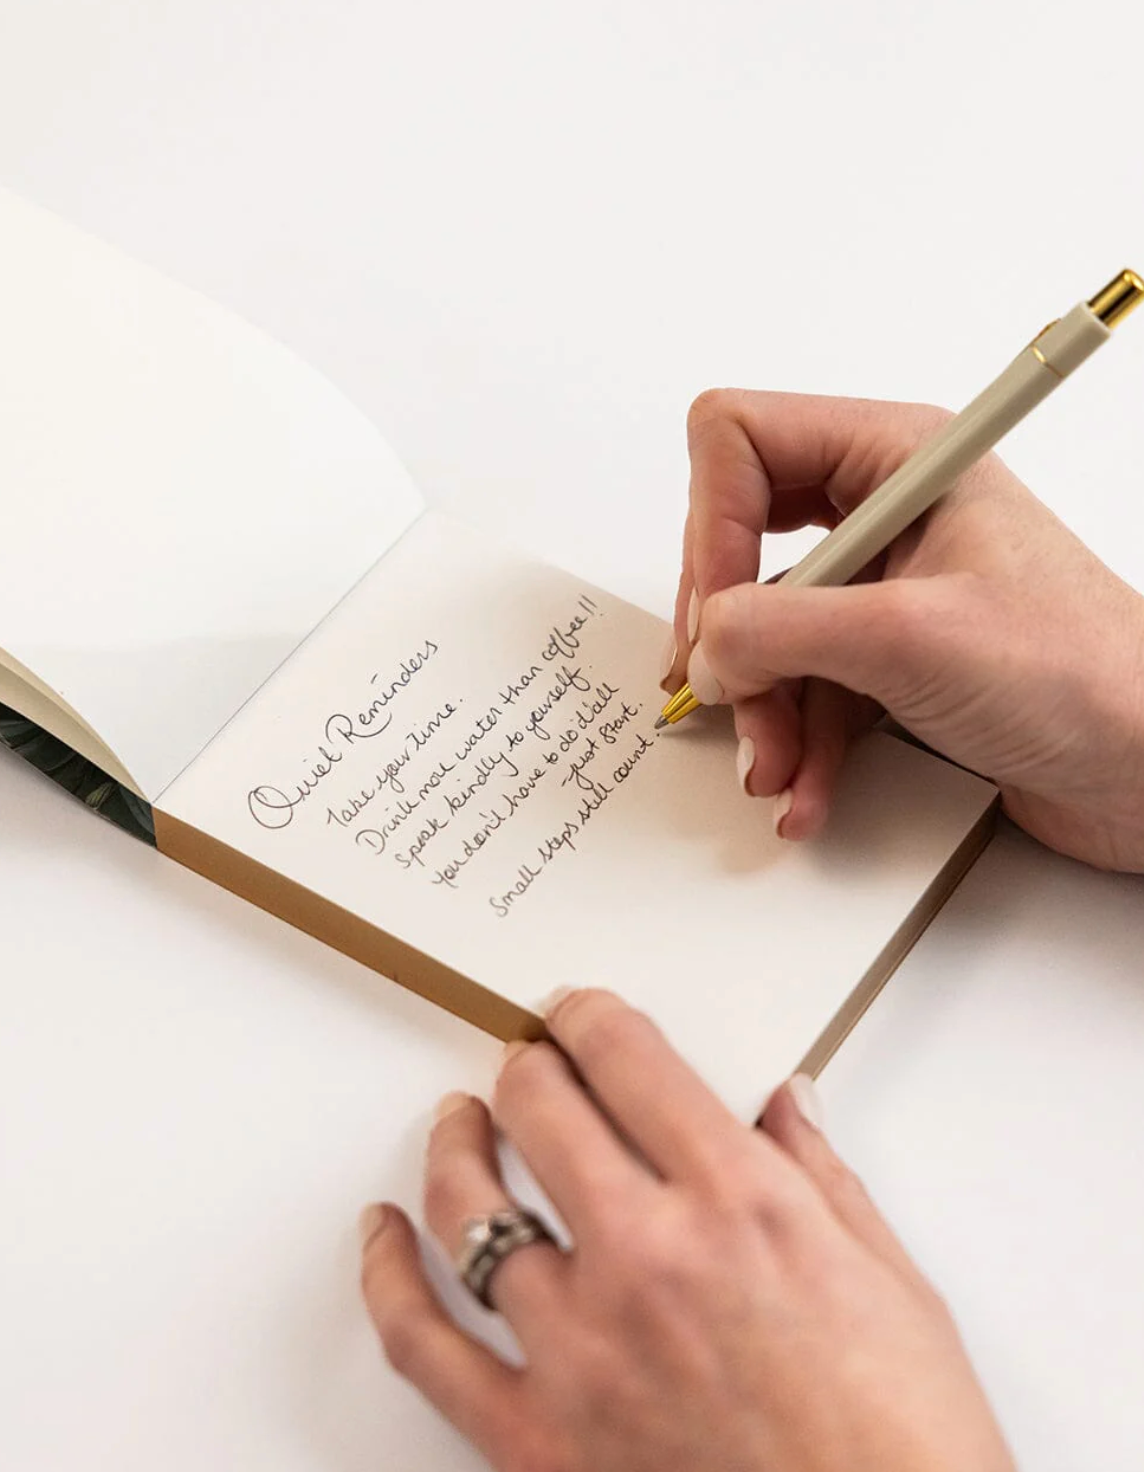 Quiet Reminders
Take your time.
Drink more water than coffee!!
Speak kindly to yourself.
You don't have to do it all
just start.
Small steps still count.